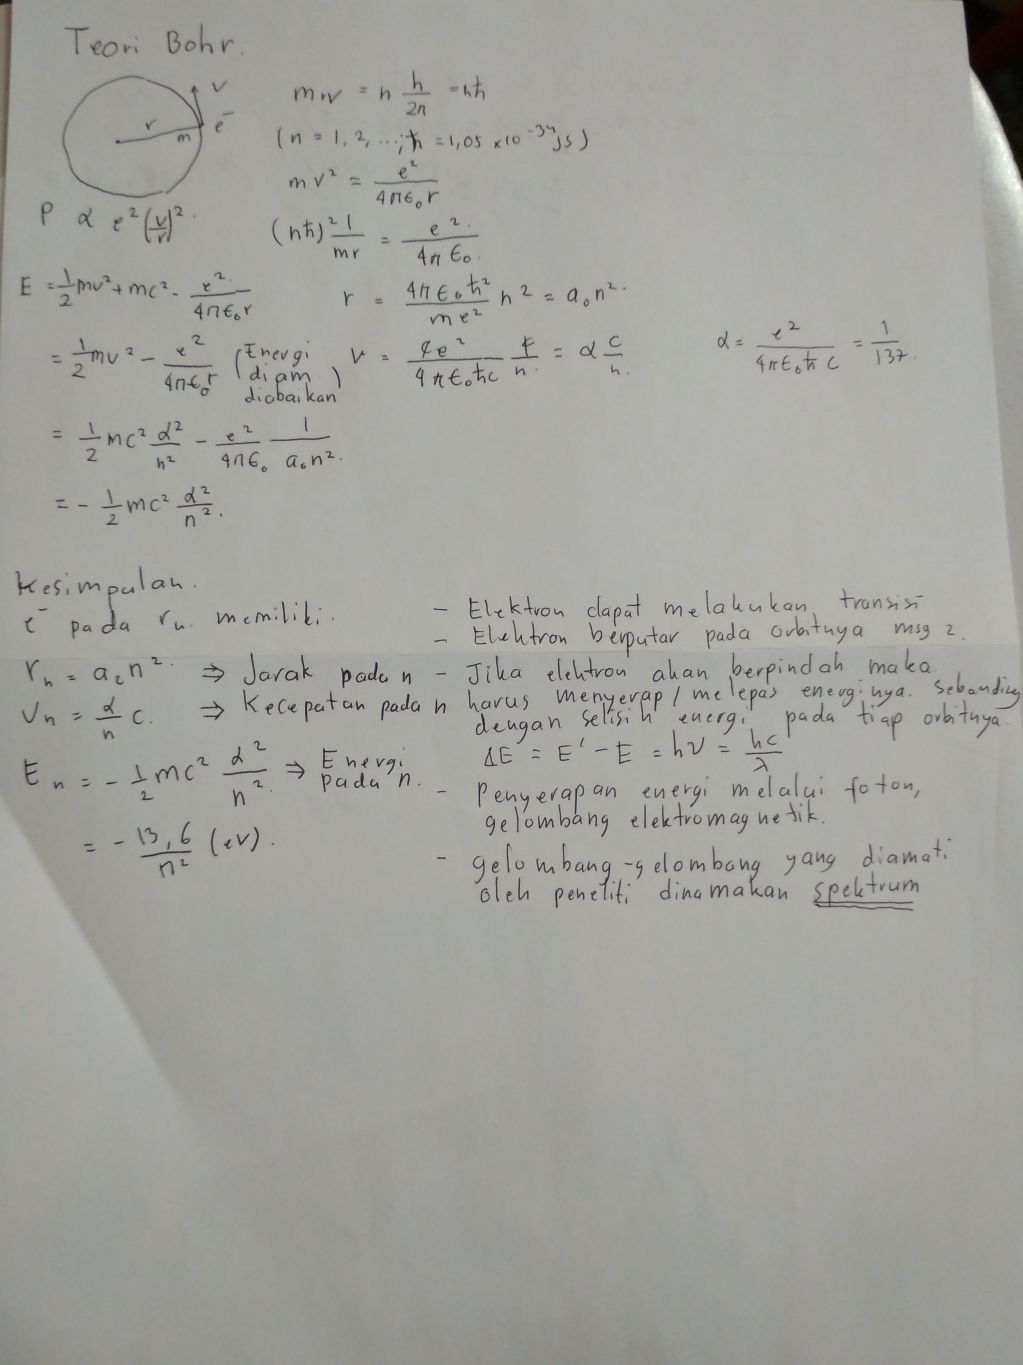 Teori Bohr.
v
r
m
e⁻
mrv = n h/2π = nħ
(n = 1, 2, ...; ħ = 1,05 × 10⁻³⁴ Js)
mv² = e²/4πϵ₀r
P α e² (v/r)².
(nħ)² 1/mr = e²/4πϵ₀.
E = 1/2 mv² + mc² - e²/4πϵ₀r
r = 4πϵ₀ħ²/me² n² = a₀n².
= 1/2 mv² - e²/4πϵ₀r (Energi diam diabaikan)
v = ce²/4πϵ₀ħc 1/n. = α c/n.
α = e²/4πϵ₀ħc = 1/137.
= 1/2 mc² α²/n² - e²/4πϵ₀ 1/a₀n².
= - 1/2 mc² α²/n².
Kesimpulan.
e⁻ pada rₙ. memiliki.
rₙ = a₂n². ⇒ Jarak pada n
vₙ = α/n c. ⇒ Kecepatan pada n
Eₙ = - 1/2 mc² α²/n². ⇒ Energi pada n.
= - 13,6/n² (eV).
- Elektron dapat melakukan transisi
- Elektron berputar pada orbitnya msg2.
- Jika elektron akan berpindah maka
harus menyerap / melepas energinya. Sebanding
dengan selisih energi pada tiap orbitnya.
ΔE = E' - E = hν = hc/λ
- Penyerapan energi melalui foton,
gelombang elektromagnetik.
- gelombang-gelombang yang diamati
oleh peneliti dinamakan spektrum